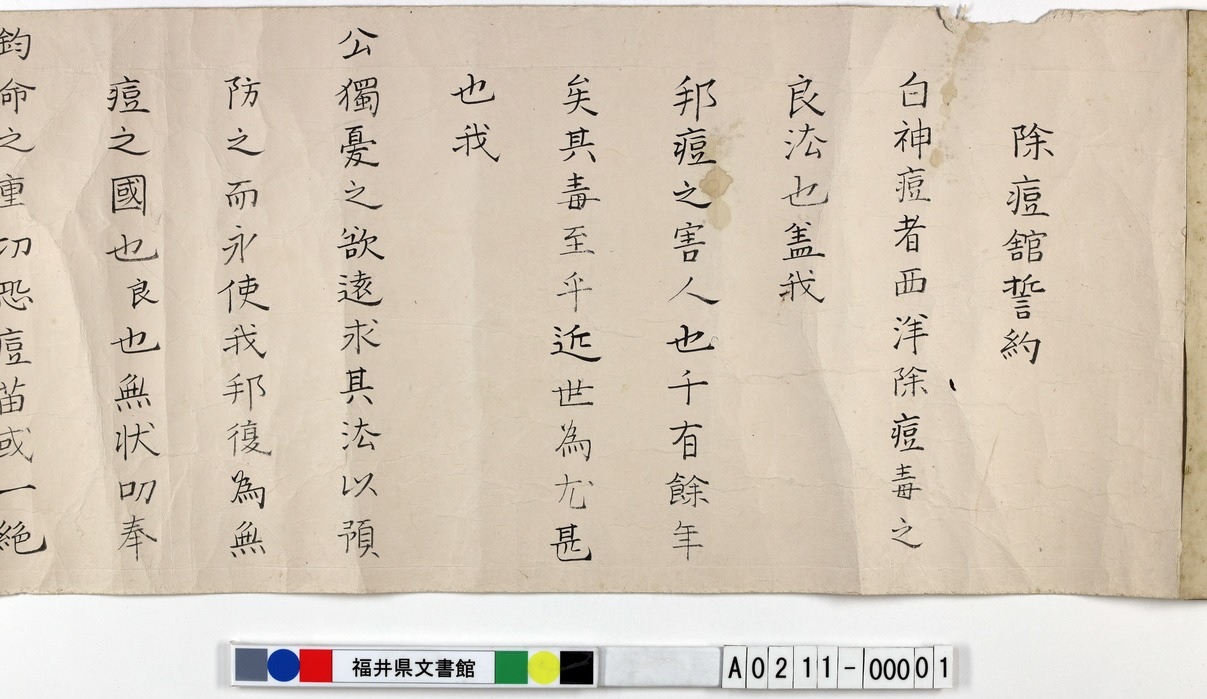 除痘舘誓約
白神痘者西洋除痘毒之
良法也盖我
邦痘之害人也千有餘年
矣其毒至乎近世為尤甚
也我
公獨憂之欲遠求其法以預
防之而永使我邦復為無
痘之國也良也無状叨奉
鈞命之重切恐痘苗或一絶
福井県文書館
A0211-00001